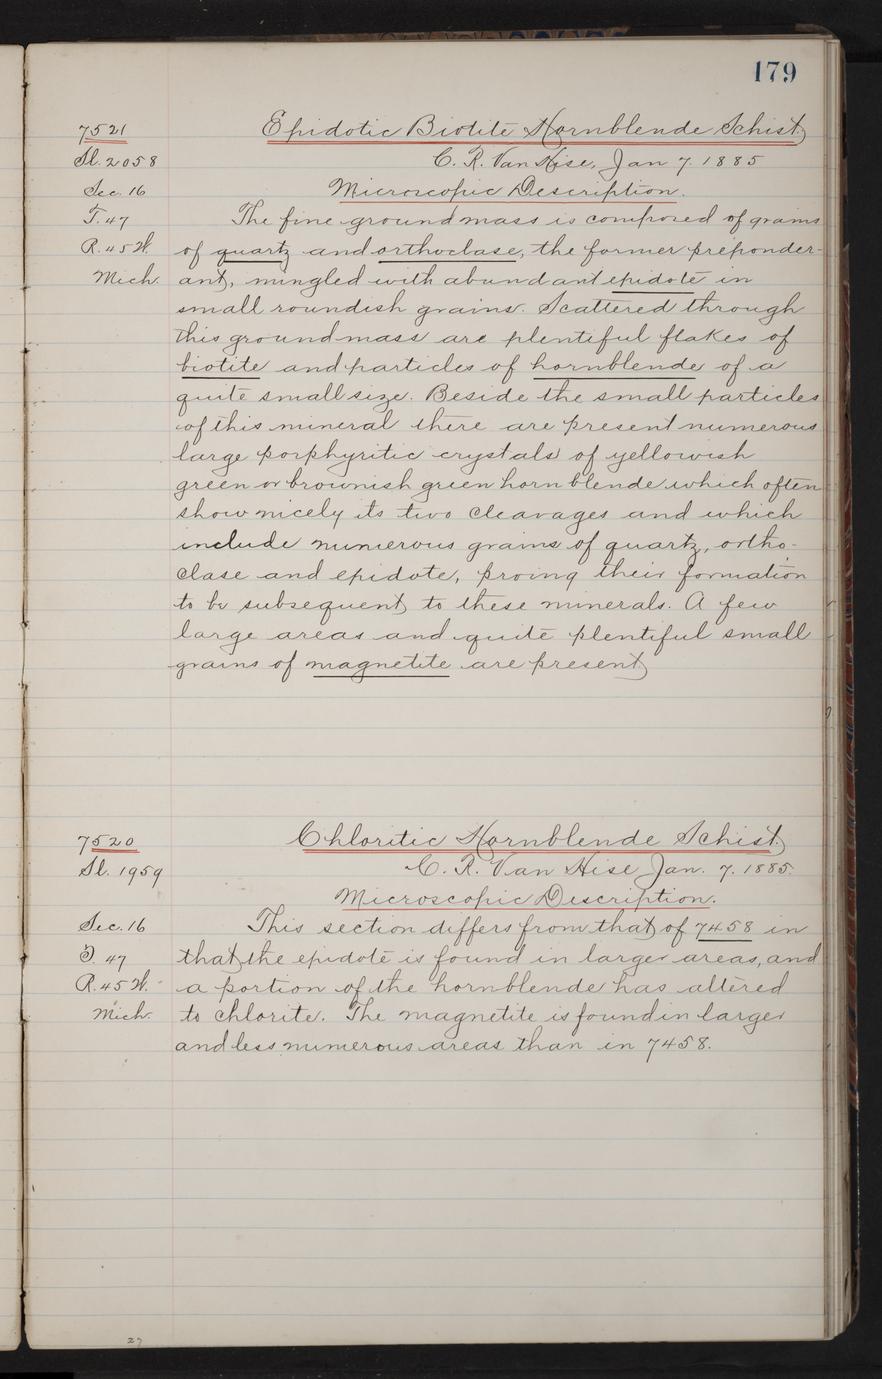 179
7521
Epidotic Biotite Hornblende Schist
Sl. 2058
C. R. Van Hise, Jan 7. 1885
Sec. 16
Microscopic Description.
T. 47
The fine groundmass is composed of grains
R. 45 W.
of quartz and orthoclase, the former preponder-
Mich.
ant, mingled with abundant epidote in
small roundish grains. Scattered through
this groundmass are plentiful flakes of
biotite and particles of hornblende of a
quite small size. Beside the small particles
of this mineral there are present numerous
large porphyritic crystals of yellowish
green or brownish green hornblende which often
show nicely its two cleavages and which
include numerous grains of quartz, ortho-
clase and epidote, proing their formation
to be subsequent to these minerals. A few
large areas and quite plentiful small
grains of magnetite are present
7520
Chloritic Hornblende Schist.
Sl. 1959
C. R. Van Hise Jan. 7. 1885.
Microscopic Description.
Sec. 16
This section differs from that of 7458 in
T. 47
that the epidote is found in larger areas, and
R. 45 W.
a portion of the hornblende has altered
Mich.
to chlorite. The magnetite is found in larger
and less numerous areas than in 7458.
27